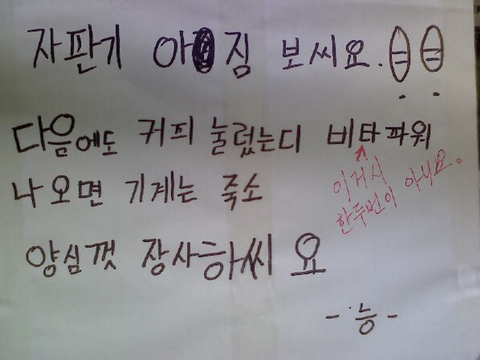 자판기 아짐 보씨요.
다음에도 커피 눌렀는디 비타파워
이거시
한두번이 아니요.
나오면 기계는 죽소
양심껏 장사하씨요
-능-